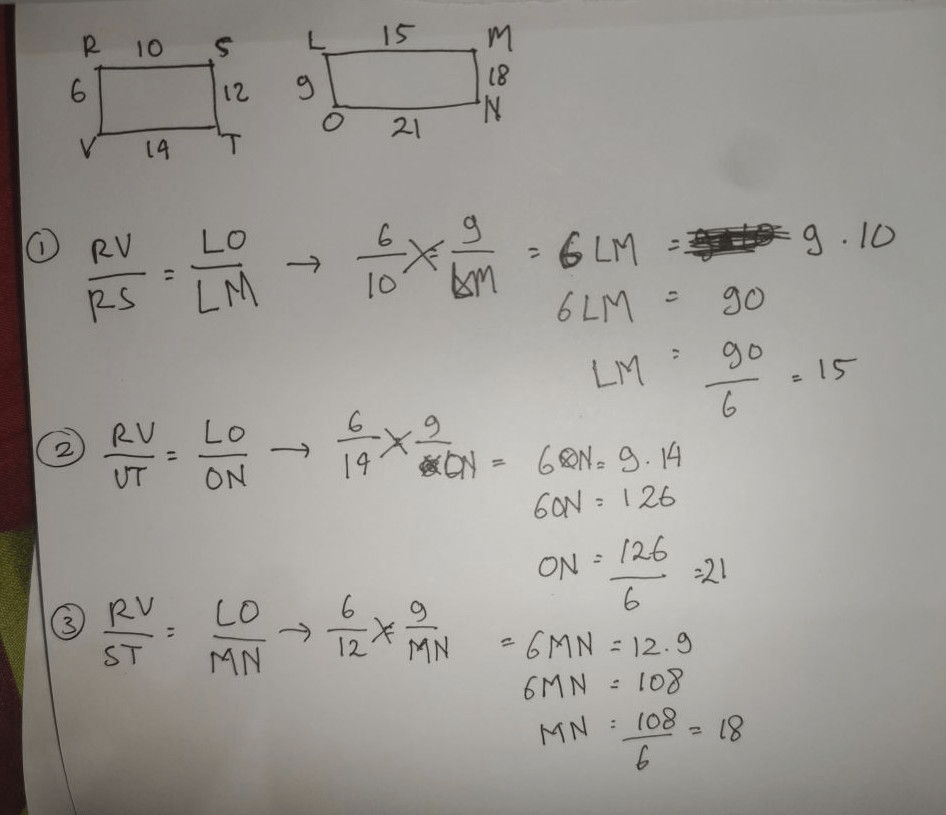 R 10 S L 15 M
6 12 9 18
V 14 T O 21 N
① RV/RS = LO/LM → 6/10 = 9/LM = 6LM = 9.10
6LM = 90
LM = 90/6 = 15
② RV/VT = LO/ON → 6/14 9/ON = 6ON = 9.14
6ON = 126
ON = 126/6 = 21
③ RV/ST = LO/MN → 6/12 = 9/MN = 6MN = 12.9
6MN = 108
MN = 108/6 = 18